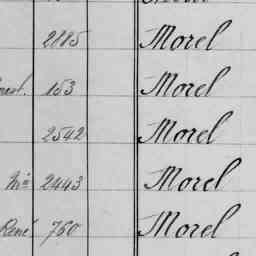 2885 Morel
153 Morel
2542 Morel
Mie 2443 Morel
René 760 Morel